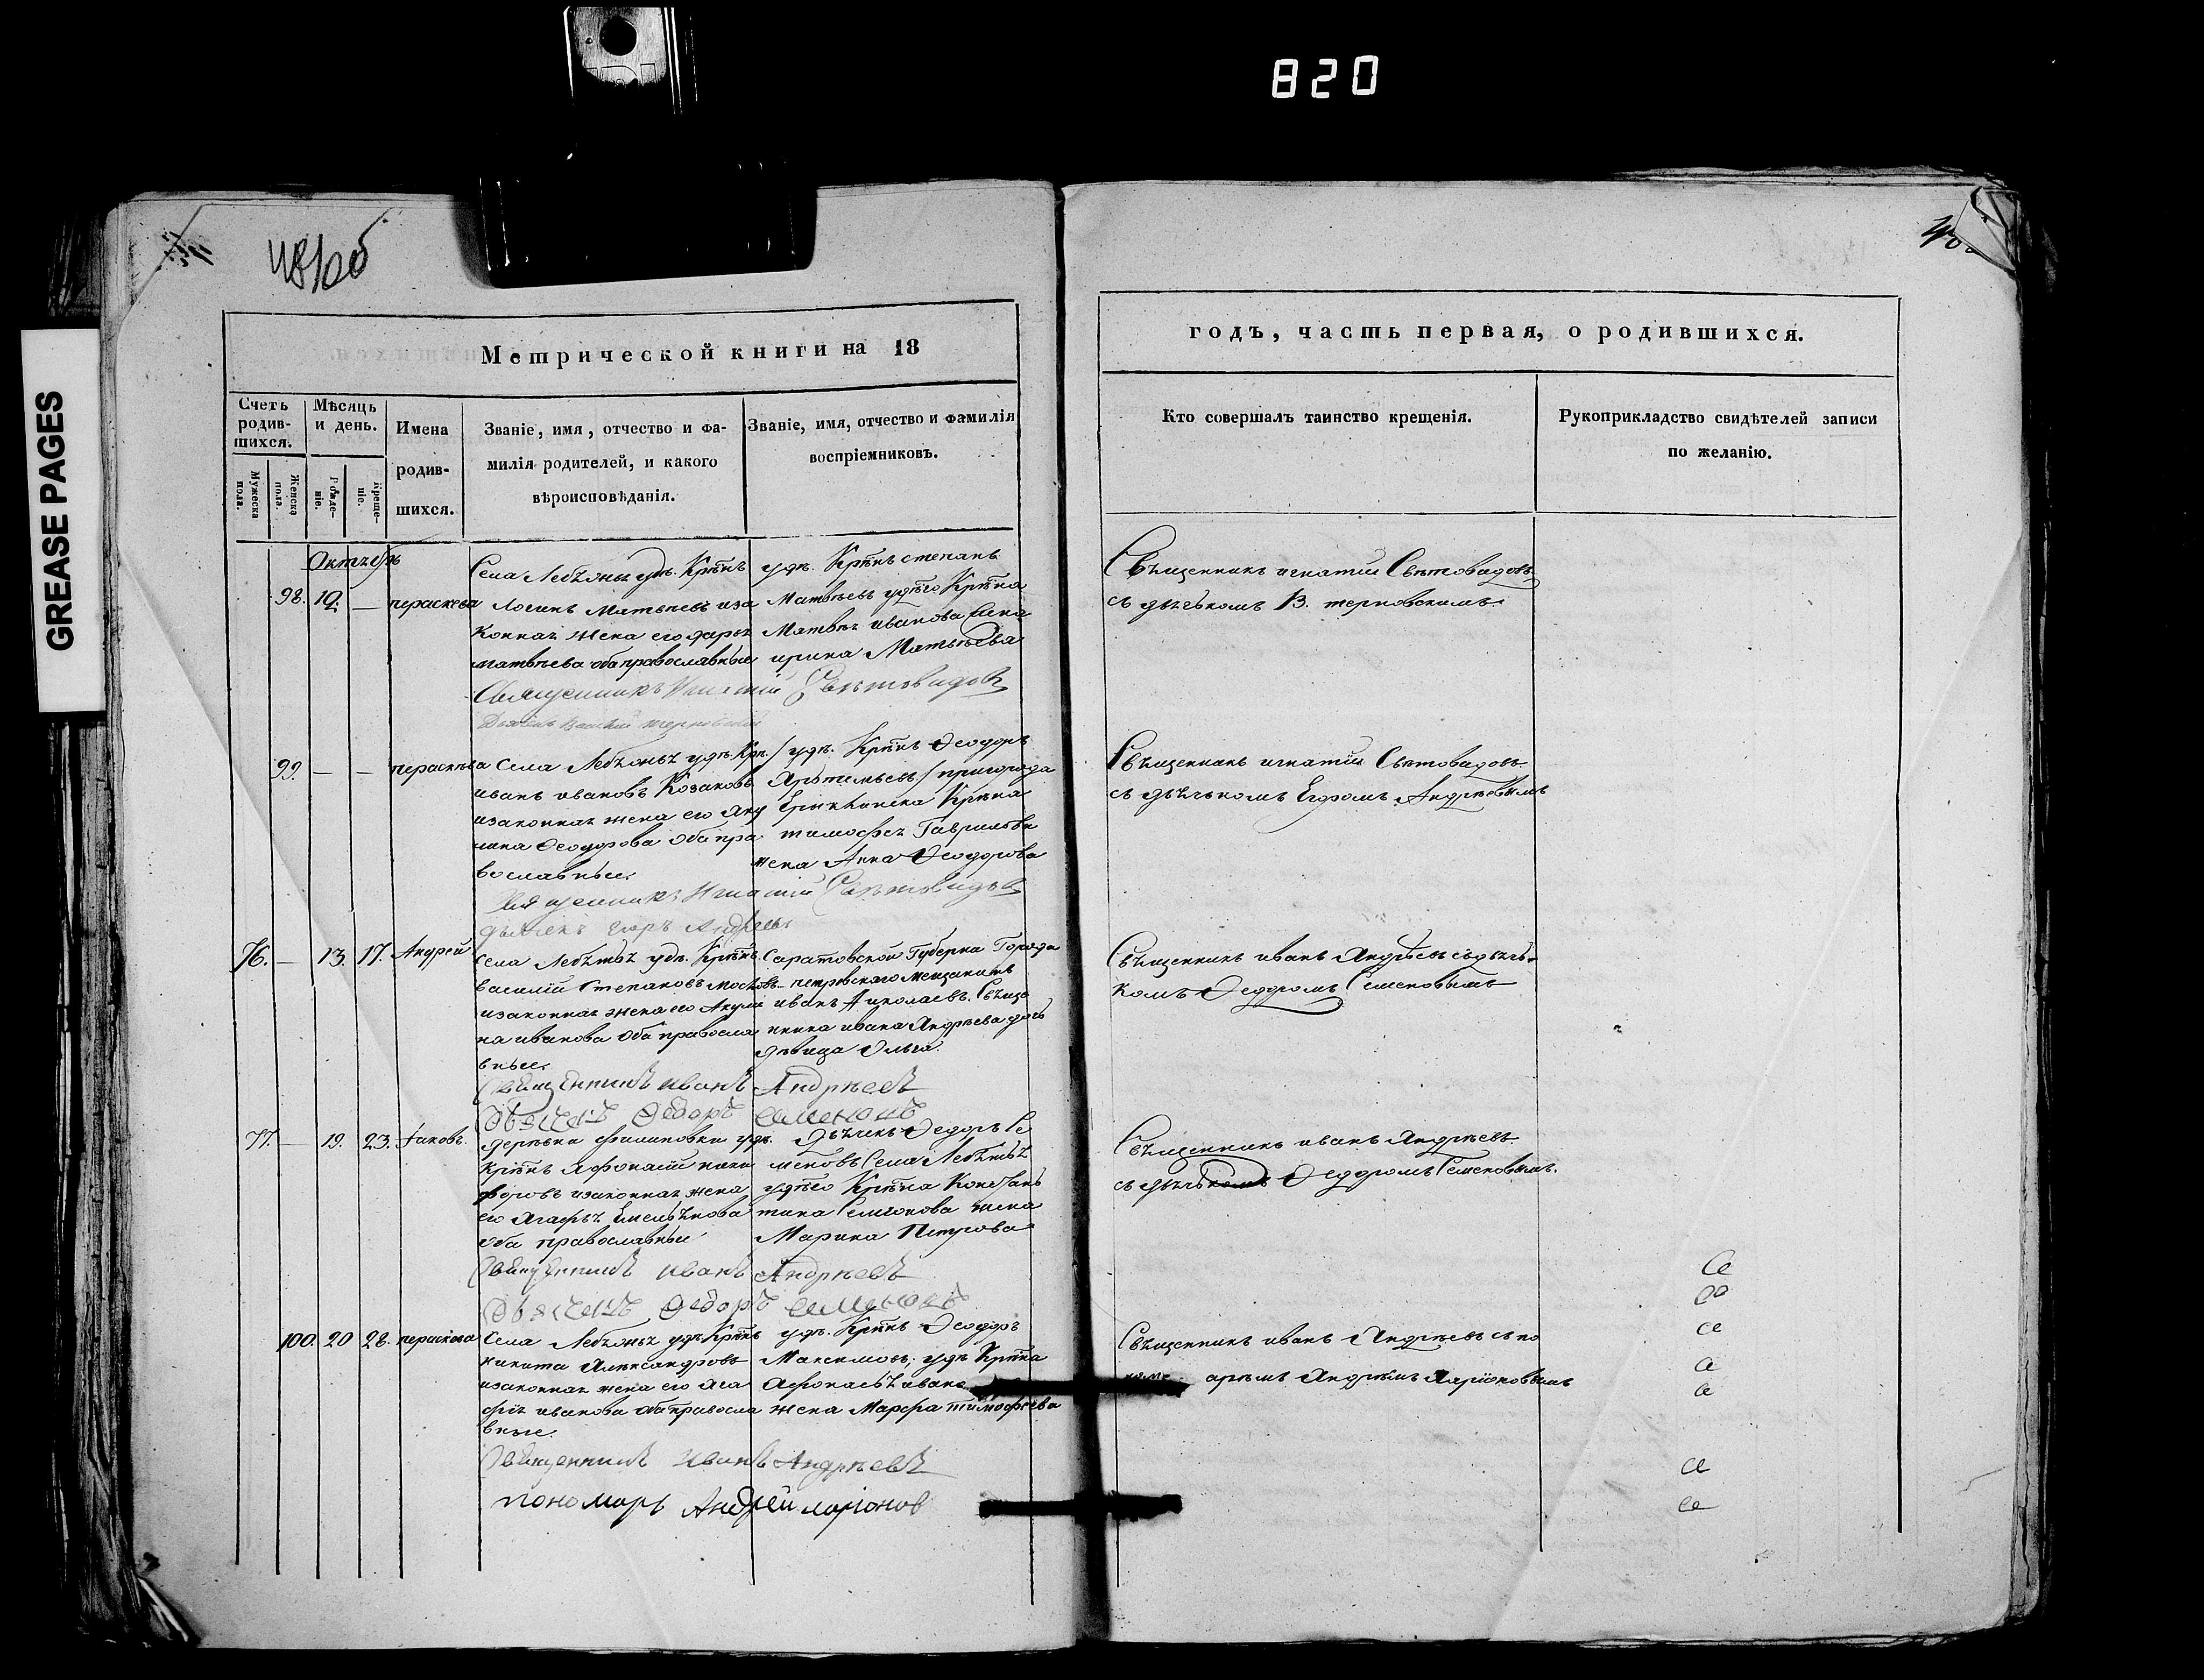 820
GREASE PAGES
481об
Метрической книги на 18
годъ, часть первая, о родившихся.
Счетъ родив-шихся.
Мужеска пола.
Женска пола.
Мѣсяць и день.
Рожде-ніе.
Креще-ніе.
Имена
родив-
шихся.
Званіе, имя, отчество и фа-
милія родителей, и какого
вѣроисповѣданія.
Званіе, имя, отчество и фамилія
воспріемниковъ.
Кто совершалъ таинство крещенія.
Рукоприкладство свидѣтелей записи
по желанію.
Октябрь
98. 12. — пераскева
Села удѣ. Крѣнъ
Логинъ Матвѣевъ иза
конная жена его дарья
матвѣева оба православные
удѣ. Крѣнъ степанъ
Матвѣевъ удѣго Крѣна
Матвѣя иванова жена
ирина Матвѣева
Священникъ игнатій Свѣтовидовъ
съ дьячкомъ В. терновскимъ.
Священникъ Игнатій Свѣтовидовъ
Дьячекъ Василій терновскій
99. — — пераскѣва
Села удѣ. Крѣ.
иванъ ивановъ Козаковъ
изаконная жена его аку
лина Ѳеодорова Оба пра
вославные.
удѣ. Крѣнъ Ѳеодоръ
Артемьевъ / пригорода
Крѣна
тимофея Гаврилова
жена Анна Ѳеодорова
Священникъ игнатій Свѣтовидовъ
съ дьячькомъ Егоромъ Андрѣевымъ
Священникъ Игнатій Свѣтовидовъ
дьячекъ Егоръ Андреевъ
76. — 13. 17. Андрей
Села удѣ. Крѣнъ
василій Степановъ
изаконная жена его Акули
на иванова Оба правосла
вные.
Саратовской Губерни Города
петровскаго мещанинъ
иванъ Николаевъ. Свяще
нника ивана Андрѣева дочь
дѣвица Ольга.
Священникъ иванъ Андрѣевъ съ дьячь
комъ Ѳедоромъ Семеновымъ
Священникъ иванъ Андрѣевъ
Дьячекъ Ѳедоръ семеновъ
77. — 19. 23. Іаковъ.
деревни филиповки удѣ.
крѣнъ Афонасій ники
форовъ изаконная жена
его Агафья Емельянова
оба православные
Дьячекъ Ѳедоръ Се
меновъ Села
удѣго Крѣна Констан
тина Семионова жена
Марина Петрова
Священникъ иванъ Андрѣевъ
съ дьячькомъ Ѳедоромъ Семеновымъ.
Священникъ иванъ Андрѣевъ
Дьячекъ Ѳедоръ семеновъ
100. 20 28. пераскева
Села удѣ. Крѣнъ
никита Александровъ
изаконная жена его ага
фья иванова оба правосла
вные.
удѣ. Крѣнъ Ѳеодоръ
Максимовъ, удѣ Крѣна
Афонасья
жена Марфа тимофѣева
Священникъ иванъ Андрѣевъ съ по
аремъ Андрѣемъ Ларіоновымъ
Священникъ иванъ Андрѣевъ
пономарь Андрей ларіонов